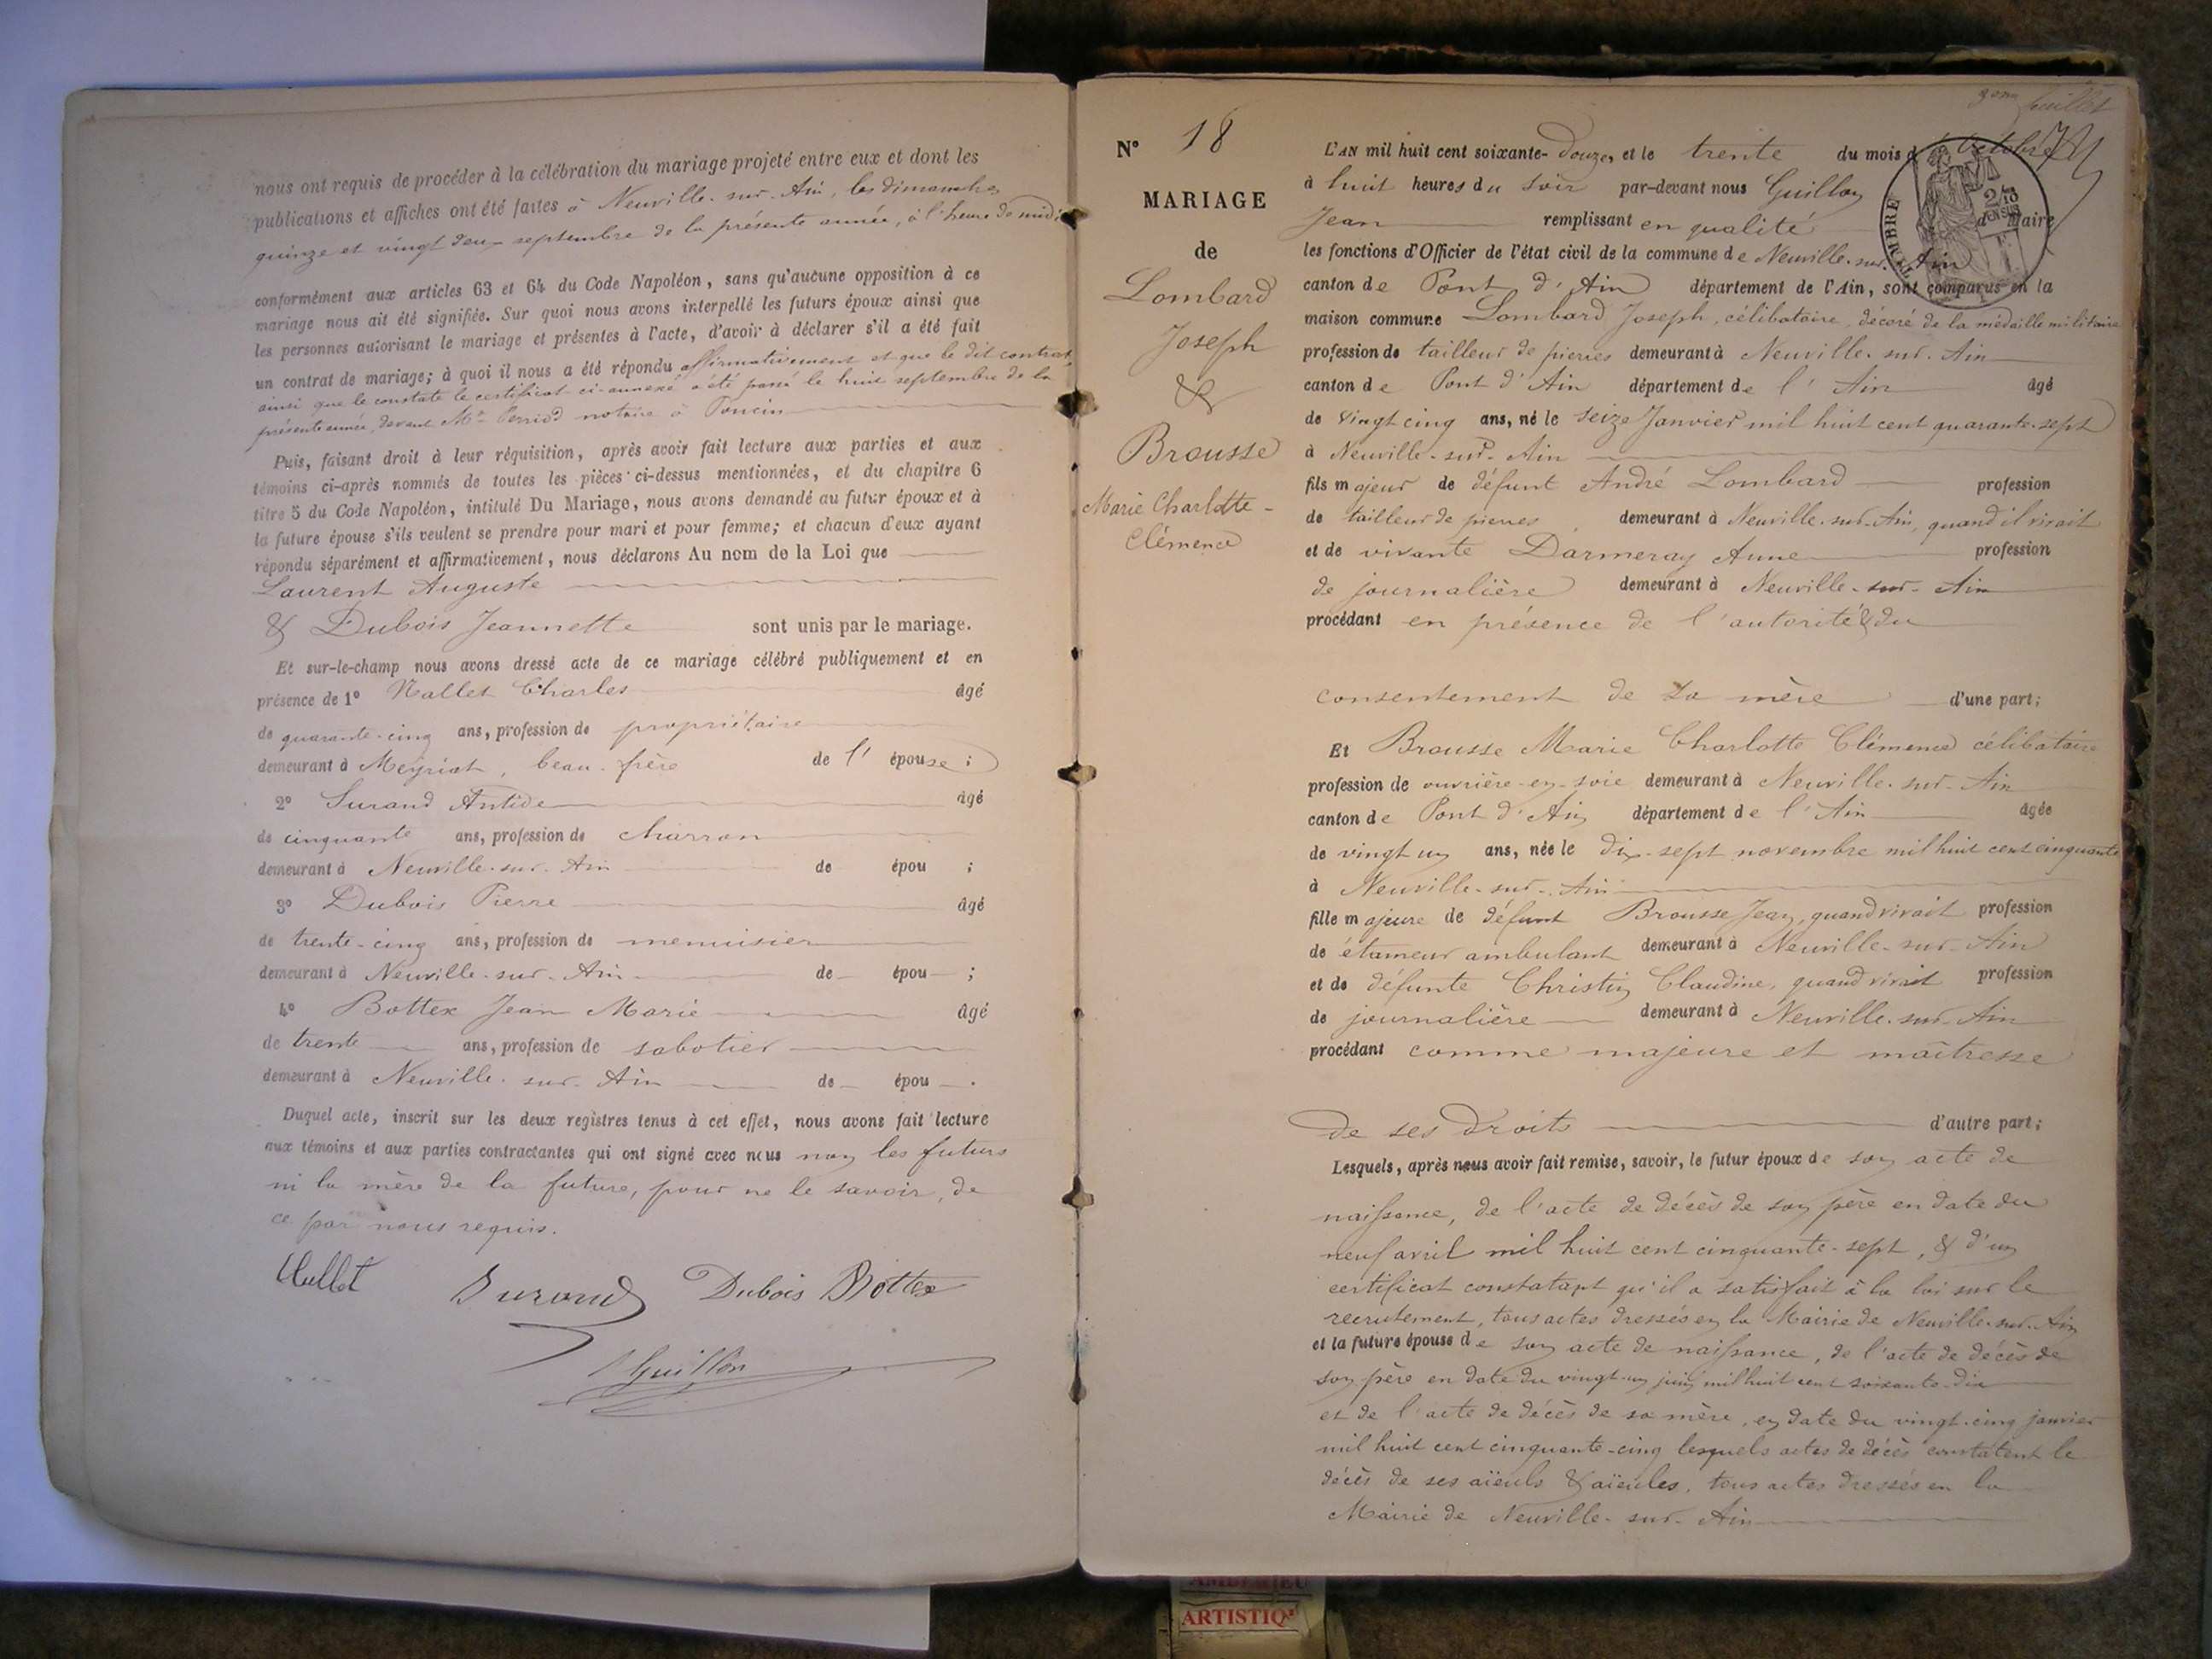 nous ont requis de procéder à la célébration du mariage projeté entre eux et dont les
publications et affiches ont été faites à Neuville-sur-Ain, les dimanches
quinze et vingt deux septembre de la présente année, à l'heure de midi
conformément aux articles 63 et 64 du Code Napoléon, sans qu'aucune opposition à ce
mariage nous ait été signifiée. Sur quoi nous avons interpellé les futurs époux ainsi que
les personnes autorisant le mariage et présentes à l'acte, d'avoir à déclarer s'il a été fait
un contrat de mariage; à quoi il nous a été répondu affirmativement et que le dit contrat,
ainsi que le constate le certificat ci-annexé a été passé le huit septembre de la
présente année, devant Me Perrod notaire à Poncin
Puis, faisant droit à leur réquisition, après avoir fait lecture aux parties et aux
témoins ci-après nommés de toutes les pièces ci-dessus mentionnées, et du chapitre 6
titre 5 du Code Napoléon, intitulé Du Mariage, nous avons demandé au futur époux et à
la future épouse s'ils veulent se prendre pour mari et pour femme; et chacun d'eux ayant
répondu séparément et affirmativement, nous déclarons Au nom de la Loi que
Laurent Auguste
& Dubois Jeannette sont unis par le mariage.
Et sur-le-champ nous avons dressé acte de ce mariage célébré publiquement et en
présence de 1° Nallet Charles âgé
de quarante-cinq ans, profession de propriétaire
demeurant à Meyriat, beau-frère de l'épouse;
2° Durand Antide âgé
de cinquante ans, profession de charron
demeurant à Neuville-sur-Ain de épou ;
3° Dubois Pierre âgé
de trente-cinq ans, profession de menuisier
demeurant à Neuville-sur-Ain de épou ;
4° Bottex Jean Marie âgé
de trente ans, profession de sabotier
demeurant à Neuville-sur-Ain de épou .
Duquel acte, inscrit sur les deux registres tenus à cet effet, nous avons fait lecture
aux témoins et aux parties contractantes qui ont signé avec nous non les futurs
ni la mère de la future, pour ne le savoir, de
ce par nous requis.
Nallet Durand Dubois Bottex
Guillon
feuillet
N° 18
MARIAGE
de
Lombard
Joseph
&
Brousse
Marie Charlotte-
Clémence
L'AN mil huit cent soixante-douze, et le trente du mois d'octobre
à huit heures du soir par-devant nous Guillon
Jean remplissant en qualité de Maire
TIMBRE
les fonctions d'Officier de l'état civil de la commune de Neuville-sur-Ain
canton de Pont d'Ain département de l'Ain, sont comparus en la
maison commune Lombard Joseph, célibataire, décoré de la médaille militaire
profession de tailleur de pierres demeurant à Neuville-sur-Ain
canton de Pont d'Ain département de l'Ain âgé
de vingt cinq ans, né le seize Janvier mil huit cent quarante-sept
à Neuville-sur-Ain
fils majeur de défunt André Lombard profession
de tailleur de pierres, demeurant à Neuville-sur-Ain, quand il vivait
et de vivante Darmeray Anne profession
de journalière demeurant à Neuville-sur-Ain
procédant en présence de l'autorité & du
consentement de sa mère d'une part;
Et Brousse Marie Charlotte Clémence célibataire
profession de ouvrière-en-soie demeurant à Neuville-sur-Ain
canton de Pont d'Ain département de l'Ain âgée
de vingt un ans, née le dix-sept novembre mil huit cent cinquante
à Neuville-sur-Ain
fille majeure de défunt Brousse Jean, quand vivait profession
de étameur ambulant demeurant à Neuville-sur-Ain
et de défunte Christin Claudine, quand vivait profession
de journalière demeurant à Neuville-sur-Ain
procédant comme majeure et maîtresse
de ses droits d'autre part;
Lesquels, après nous avoir fait remise, savoir, le futur époux de son acte de
naissance, de l'acte de décès de son père en date du
neuf avril mil huit cent cinquante-sept, & d'un
certificat constatant qu'il a satisfait à la loi sur le
recrutement, tous actes dressés en la Mairie de Neuville-sur-Ain
et la future épouse de son acte de naissance, de l'acte de décès de
son père en date du vingt-un juin mil huit cent soixante-dix
et de l'acte de décès de sa mère, en date du vingt-cinq janvier
mil huit cent cinquante-cinq lesquels actes de décès constatent le
décès de ses aïeuls & aïeules, tous actes dressés en la
Mairie de Neuville-sur-Ain
AMBERIEU
ARTISTIQ